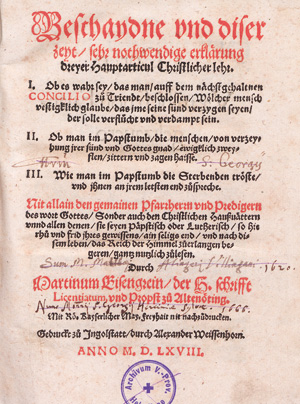 Beschaydne vnd diser
zeyt / sehr nothwendige erklärung
dreyer Hauptarticul Christlicher lehr.
I. Ob es wahr sey / das man / auff dem nächstgehaltenen
CONCILIO zu Triende / beschlossen / Wölcher mensch
vestigklich glaube / das jme seine sünd verzygen seyen /
der solle verflücht vnd verdampt sein.
II. Ob man im Papstumb / die menschen / von verzey-
hung jrer sünd vnd Gottes gnad / ewigklich zweyf-
flen / zittern vnd zagen hayße.
S. Georgij
III. Wie man im Papstumb die Sterbenden tröste /
vnd jhnen an jrem letsten end züspreche.
Nit allain den gemainen Pfarzherrn vnd Predigern
des wort Gottes / Sonder auch den Christlichen Haußvättern
vnnd allen denen / sie seyen Päpstisch oder Lutherisch / so jhr
rhü vnd frid jhres gewissens / ain seligs end / vnd nach di-
sem leben / das Reich der Himmel züerlangen be-
geren / gantz nutzlich zülesen.
Durch
1620.
Martinum Eisengrein / der H. schrifft
Licentiatum, vnd Propst zu Altenöting.
1666.
Mit Rö. Kayserlicher May. Freyhait nit nachzudrucken.
Gedruckt zu Ingolstatt / durch Alexander Weissenhorn.
ANNO M. D. LXVIII.
Archivum V. Prov.